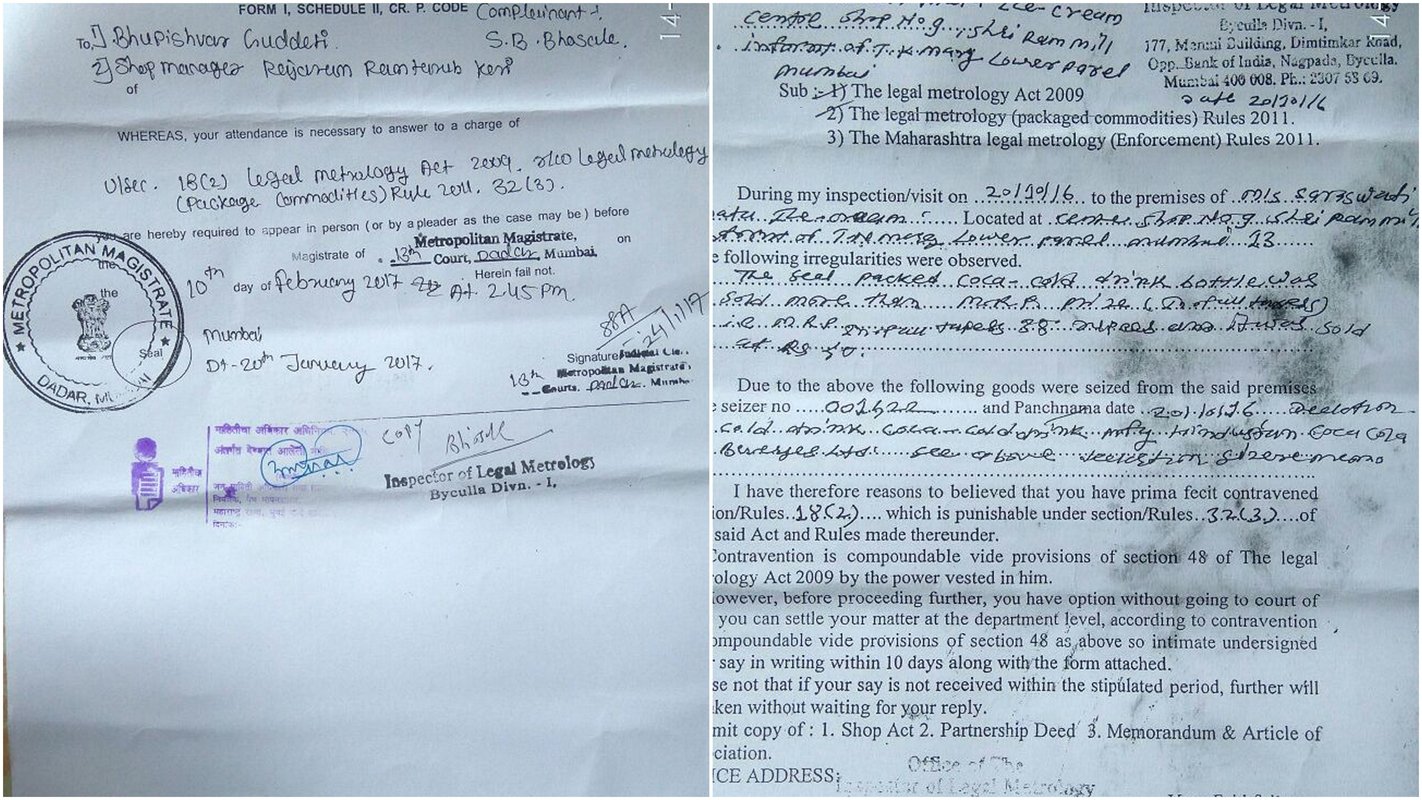 FORM I, SCHEDULE II, CR. P. CODE
Complainant :-
To, 1] Bhupishvar Gudderi
S. B. Bhosale.
2] Shop manager Rajaram
of
WHEREAS, your attendance is necessary to answer to a charge of
U/sec. 18(2) Legal metrology Act 2009. r/w Legal metrology
(Package Commodities) Rule 2011. 32(3).
you are hereby required to appear in person (or by a pleader as the case may be) before
the Magistrate of Metropolitan Magistrate, 13th Court, Dadar, Mumbai, on
the 10th day of February 2017 At 2.45 PM. Herein fail not.
METROPOLITAN MAGISTRATE
DADAR, MUMBAI
Seal
Mumbai
Dt- 20th January 2017.
88A
24/1/17
Signature Judicial
13th Metropolitan Magistrate,
Courts, Dadar, Mumbai
माहितीचा अधिकार
COPY
Bhosale
Inspector of Legal Metrology
Byculla Divn. - I,
माहितीचा
अधिकार
Ice-cream
centre Shop No 9, Shri Ram mill
infornt of T.K. marg Lower parel
mumbai
Inspector of Legal Metrology
Byculla Divn - I,
177, Memni Building, Dimtimkar Road,
Opp. Bank of India, Nagpada, Byculla.
Mumbai 400 008. Ph.: 2307 53 69.
Date 20/10/16
Sub :- 1) The legal metrology Act 2009
2) The legal metrology (packaged commodities) Rules 2011.
3) The Maharashtra legal metrology (Enforcement) Rules 2011.
During my inspection/visit on 20/10/16 to the premises of M/s Saraswati
Ice-cream Located at centre shop No 9 Shri Ram mill
infornt of T.K marg Lower parel mumbai 13
e following irregularities were observed.
The seal packed coca-cold drink bottle was
sold more then M.R.P. prize (In of all taxes)
i.e. M.R.P. rupees 38 rupees and It was sold
at Rs 50.
Due to the above the following goods were seized from the said premises
e seizer no 001522 and Panchnama date 20/10/16
cold drink coca-cold drink mfg Hindustan Coca Cola
Beverges Ltd. see above sizere memo
I have therefore reasons to believed that you have prima fecit contravened
ion/Rules 18(2) which is punishable under section/Rules 32(3) of
said Act and Rules made thereunder.
Contravention is compoundable vide provisions of section 48 of The legal
rology Act 2009 by the power vested in him.
owever, before proceeding further, you have option without going to court of
you can settle your matter at the department level, according to contravention
ompoundable vide provisions of section 48 as above so intimate undersigned
r say in writing within 10 days along with the form attached.
se not that if your say is not received within the stipulated period, further will
ken without waiting for your reply.
mit copy of : 1. Shop Act 2. Partnership Deed 3. Memorandum & Article of
ciation.
ICE ADDRESS:
Office of The
Inspector of Legal Metrology